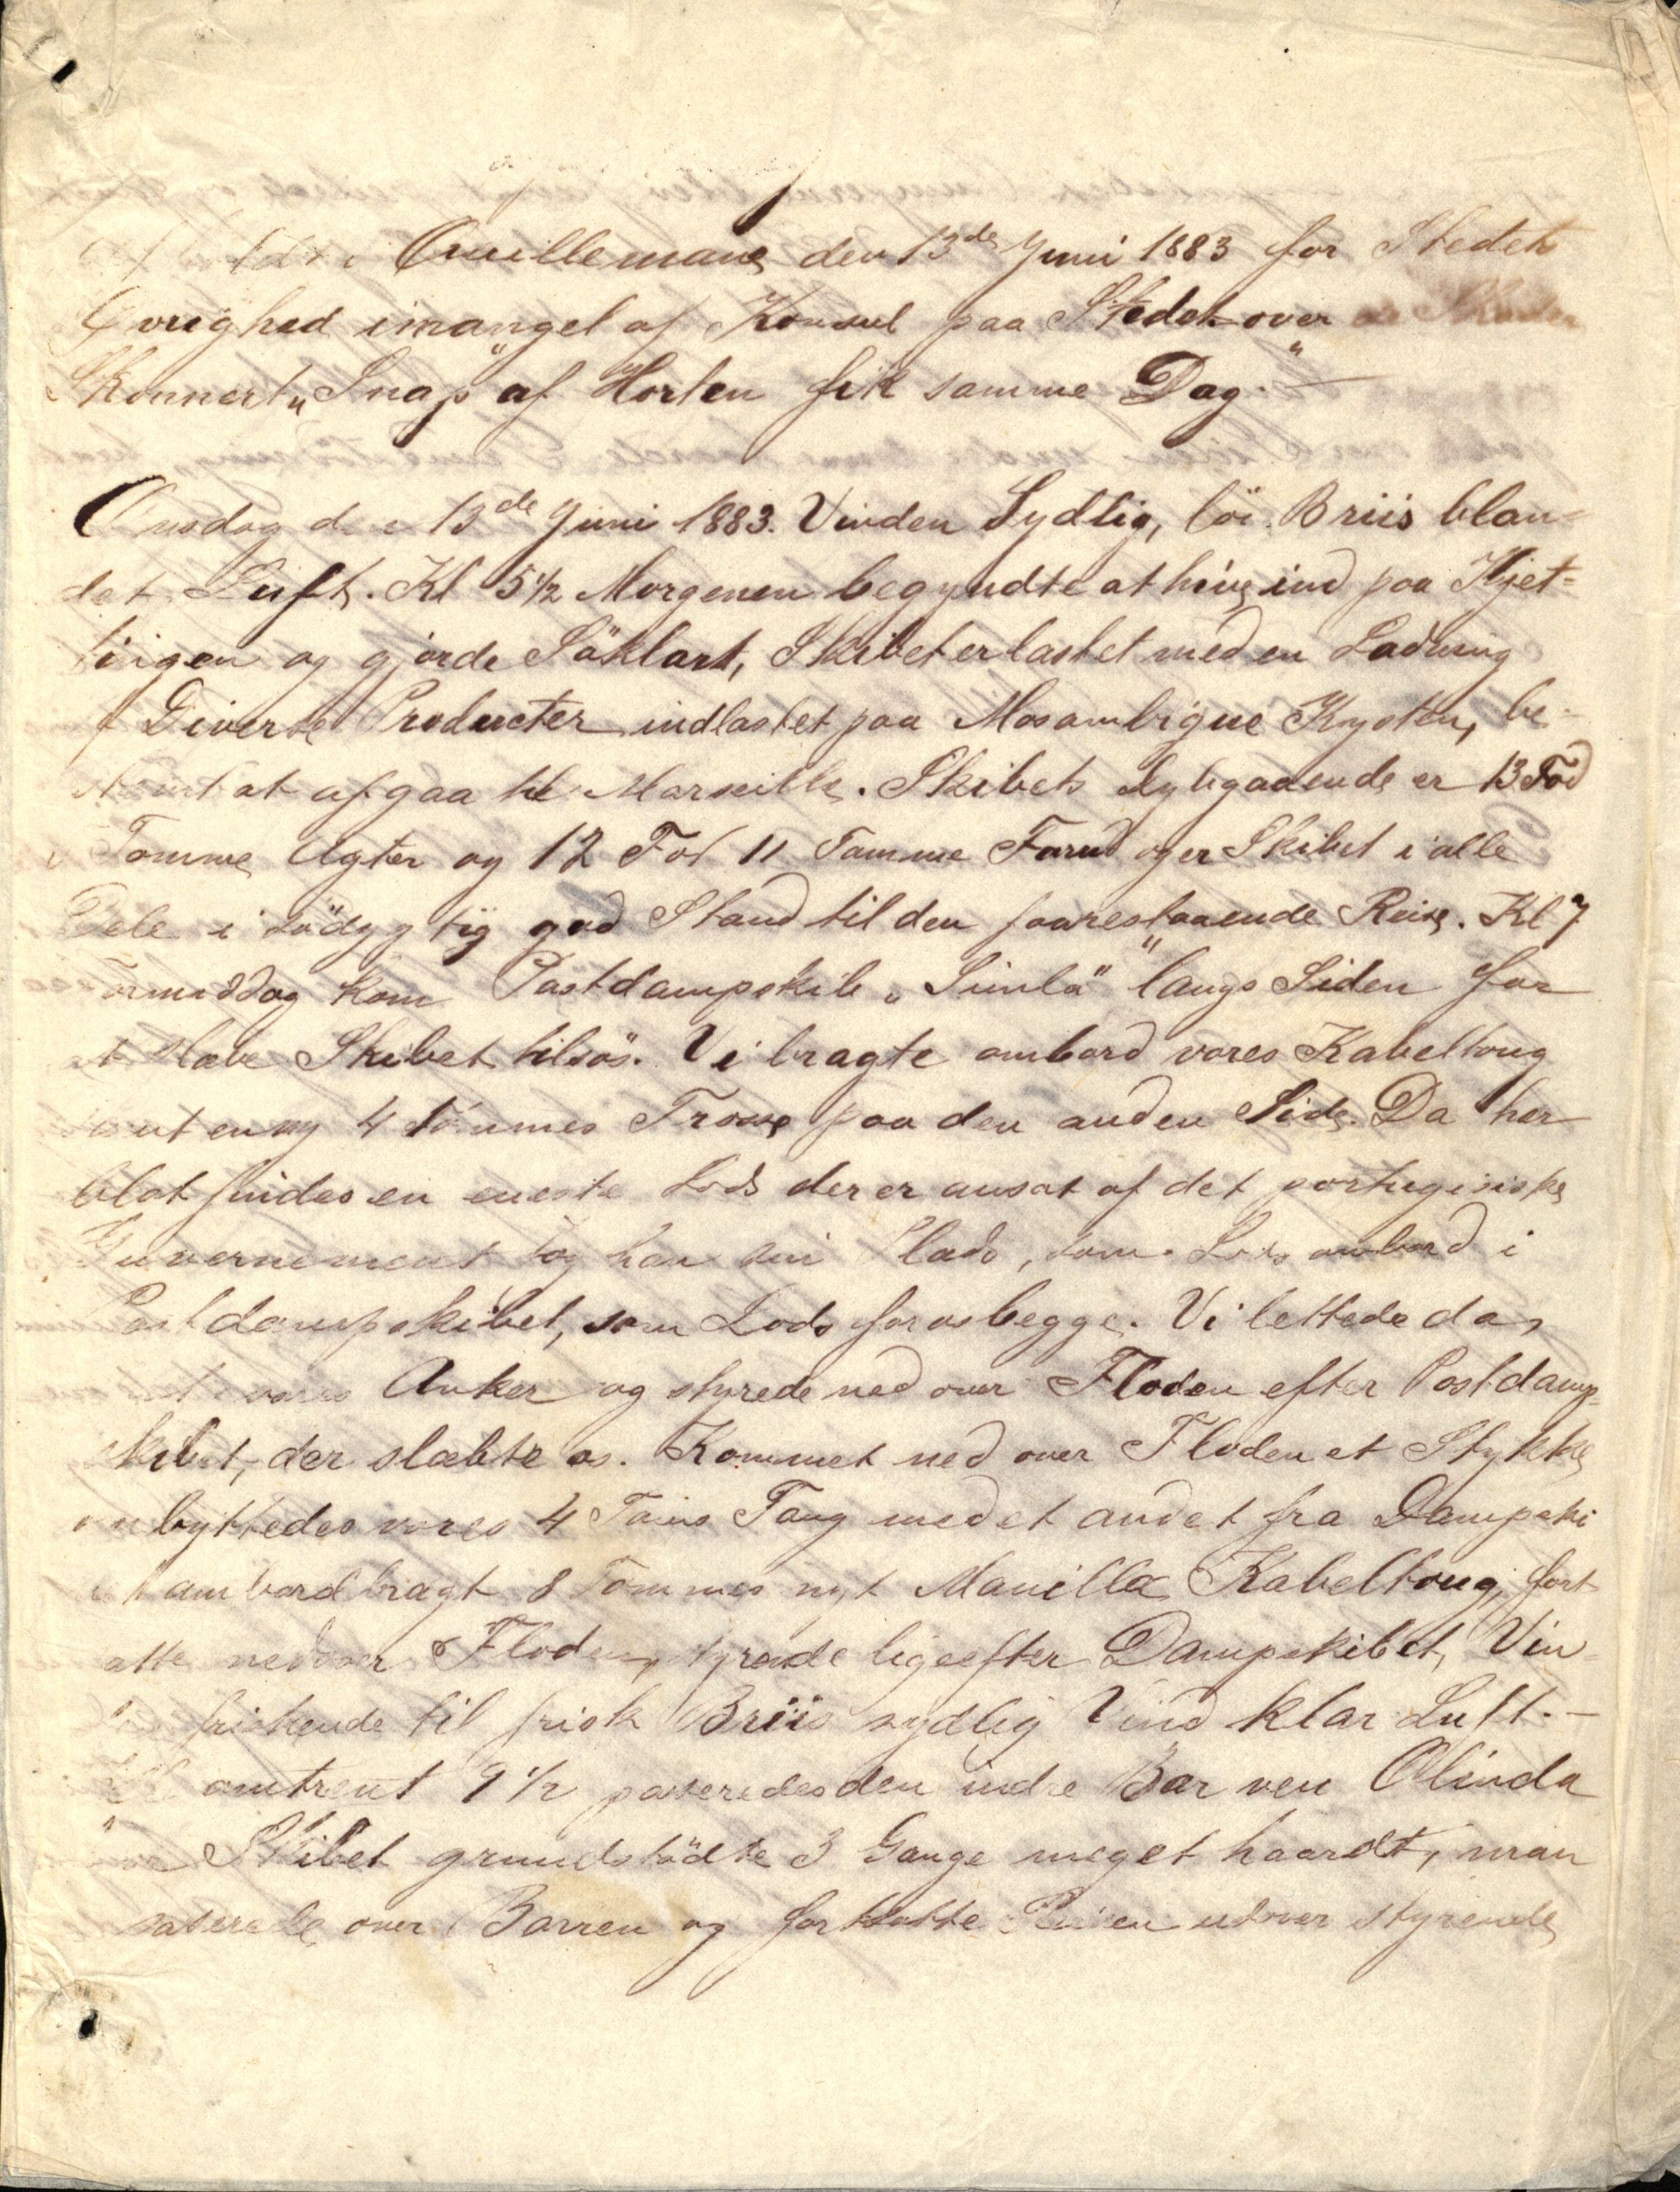 Quillemane den 13de Juni 1883 for Stedets
Övrighed imangel af Konsul paa Stedet over
Skonnert „Snap" af Horten fik samme Dag. —
Onsdag den 13de Juni 1883. Vinden Sydlig, löi Briis blan-
det Luft. Kl 5½ Morgenen begyndte at hive ind paa Kjet-
tingen og gjorde Söklart, Skibet er lastet med en Ladning
af Diverse Producter indlastet paa Mosambique Kysten, be-
stemt at afgaa til Marseille. Skibets dybgaaende er 13 Fod
Tomme Agter og 12 Fod 11 Tomme Forud og er Skibet i alle
Dele i södygtig god Stand til den forestaaende Reise. Kl 7
Formiddag kom Postdampskib „Simla" langs Siden for
at slæbe Skibet tilsös. Vi bragte ombord vores Kabeltoug
samt en ny 4 Tommes Trosse paa den anden Side. Da her
blot findes en eneste Lods der er ansat af det portugisiske
Guvernement tog han sin Plads, som Lods ombord i
Postdampskibet, som Lods for os begge. Vi lettede da,
vores Anker og styrede ned over Floden efter Postdamp-
skibet, der slæbte os. Kommet ned over Floden et Stykke
ombyttedes vores 4 Toms Toug med et andet fra Dampski
bet ambord bragt 8 Tommes nyt Manilla Kabeltoug, fort
satte nedover Floden, styrede lige efter Dampskibet, Vin
den friskende til frisk Briis sydlig Vind klar Luft. —
Kl omtrent 9½ passeredes den indre Bar ven Olinda
Skibet grundstödte 3 Gange meget haardt, man
passerede over Barren og fortsatte Reisen udover styrende